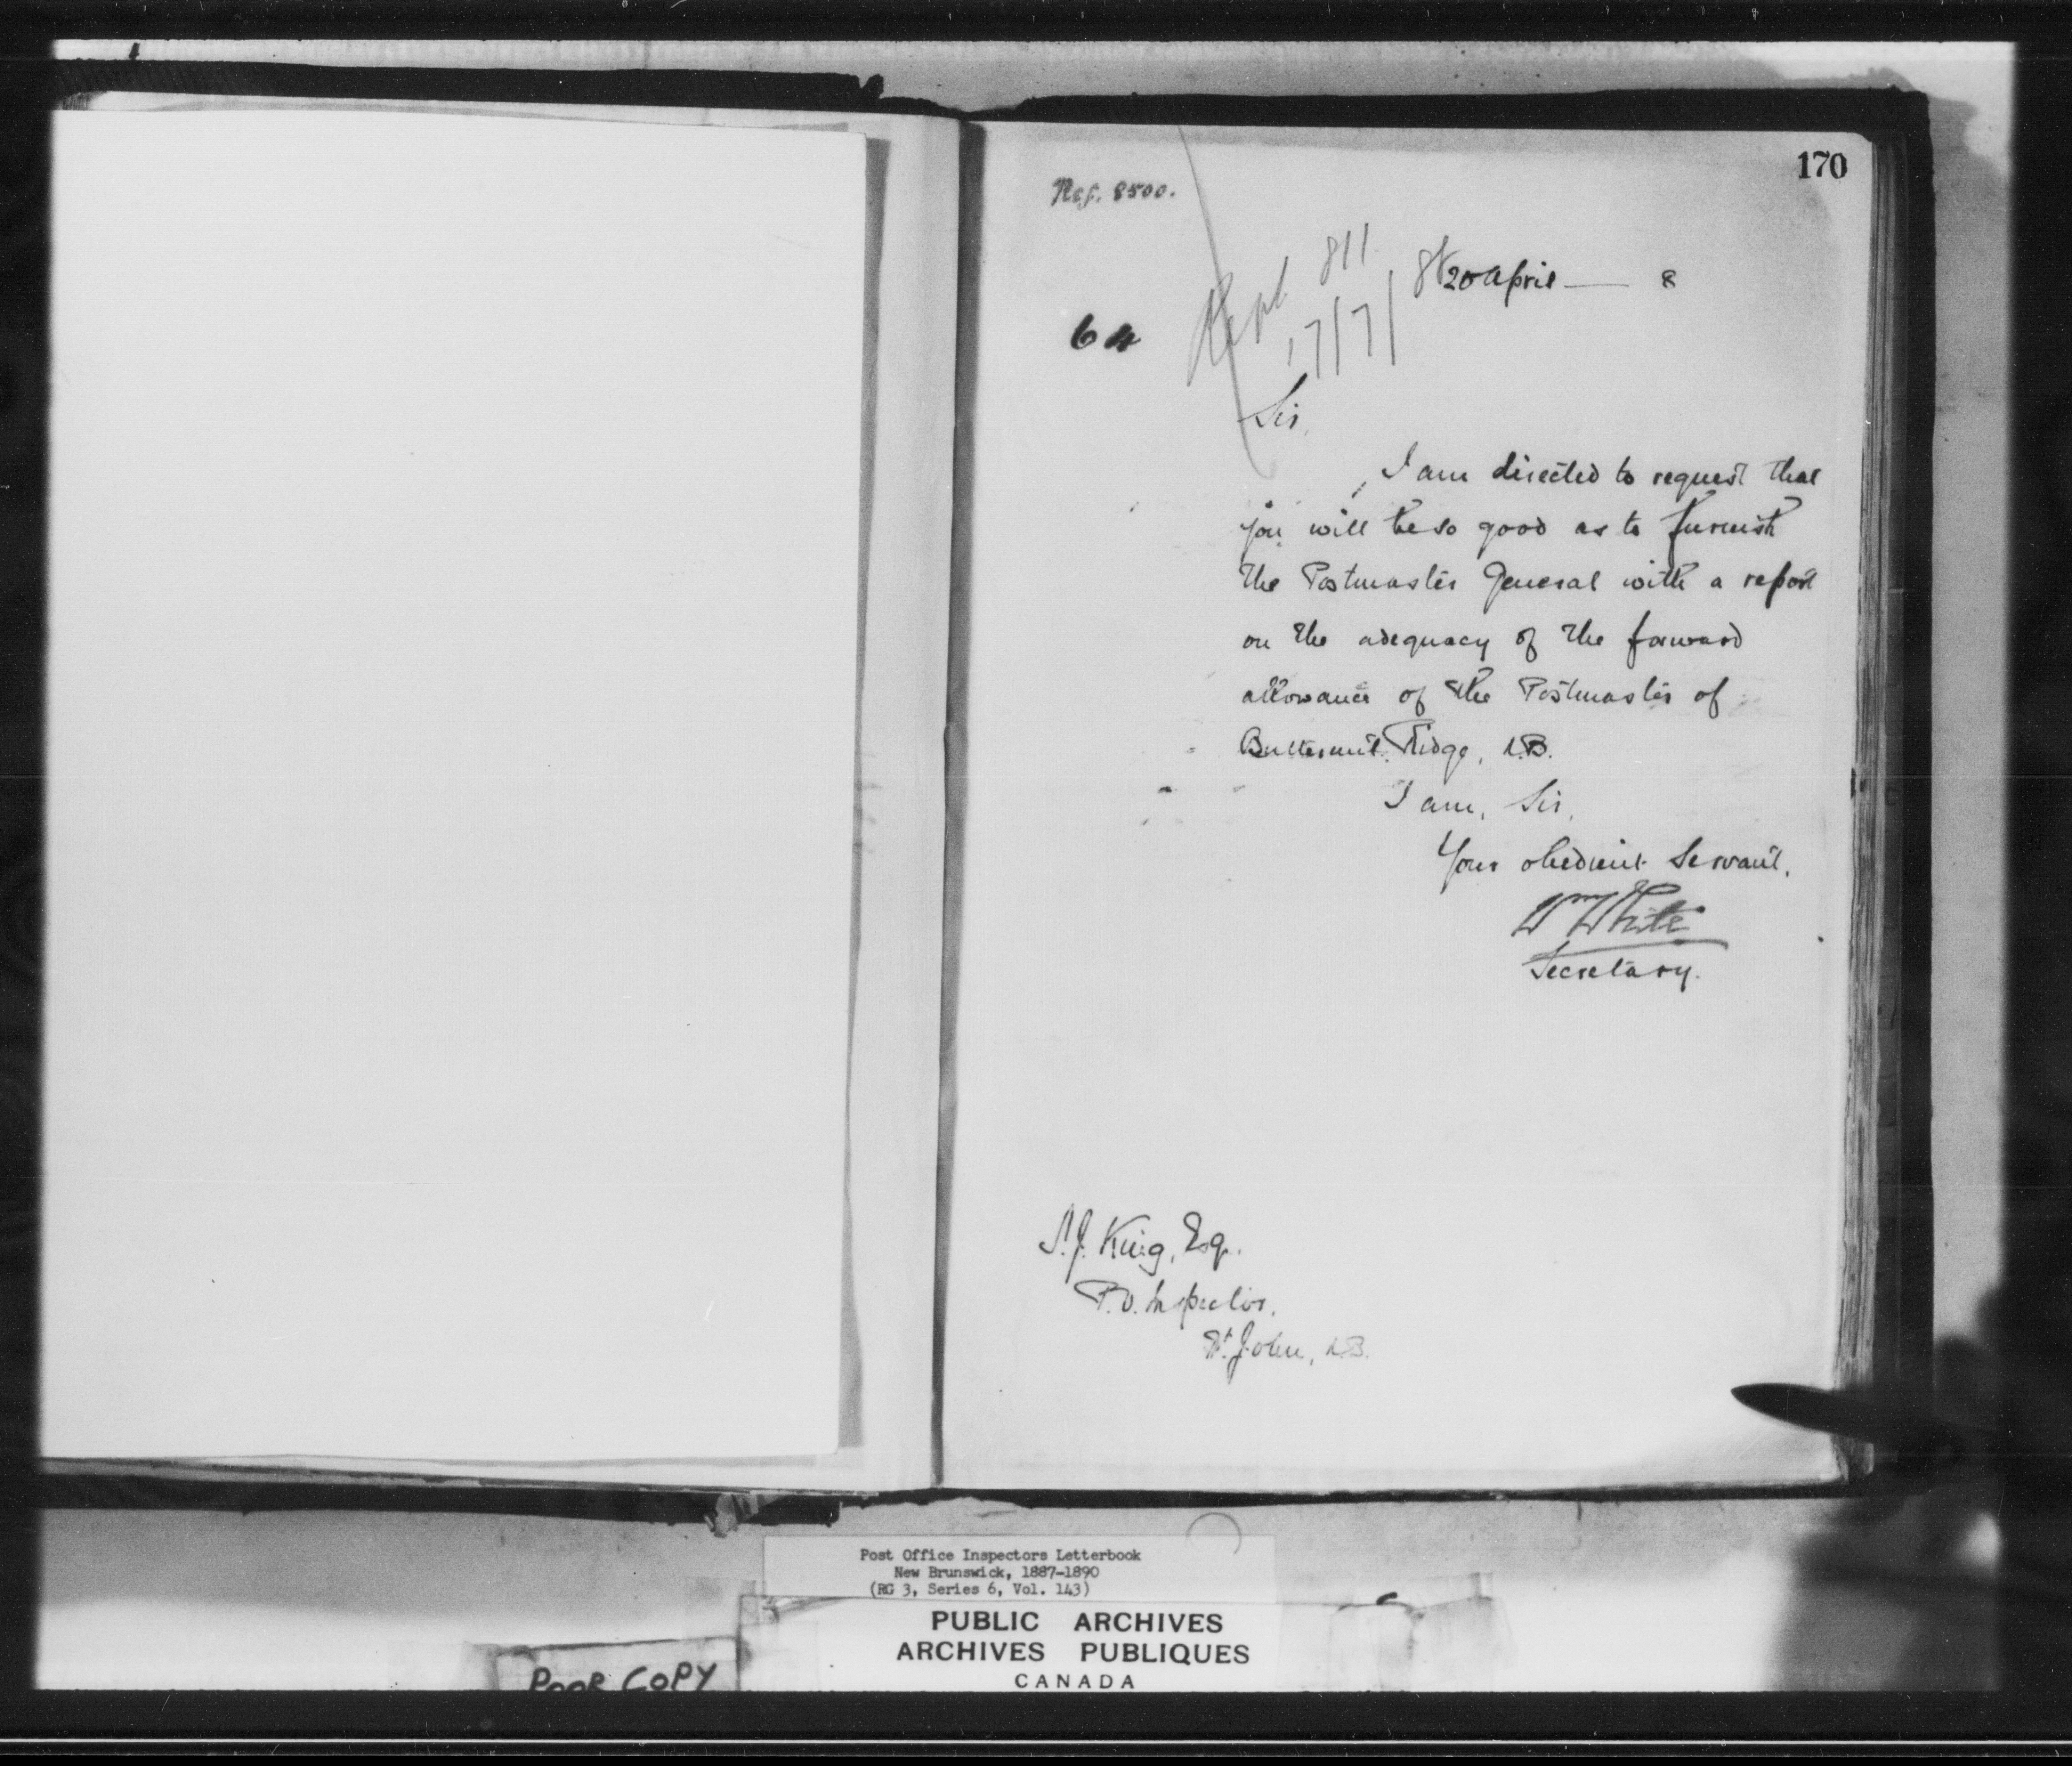 170
Ref. 8500.
Rept 811
17/7/88
20 April — 8
64
Sir,
I am directed to request that
you will be so good as to furnish
the Postmaster General with a report
on the adequacy of the forward
allowance of the Postmaster of
Butternut Ridge, N.B.
I am, Sir,
Your obedient Servant,
Wm White
Secretary.
S.J. King, Esq.
P.O. Inspector,
St. John, N.B.
Post Office Inspectors Letterbook
New Brunswick, 1887-1890
(RG 3, Series 6, Vol. 143)
PUBLIC ARCHIVES
ARCHIVES PUBLIQUES
CANADA
POOR COPY